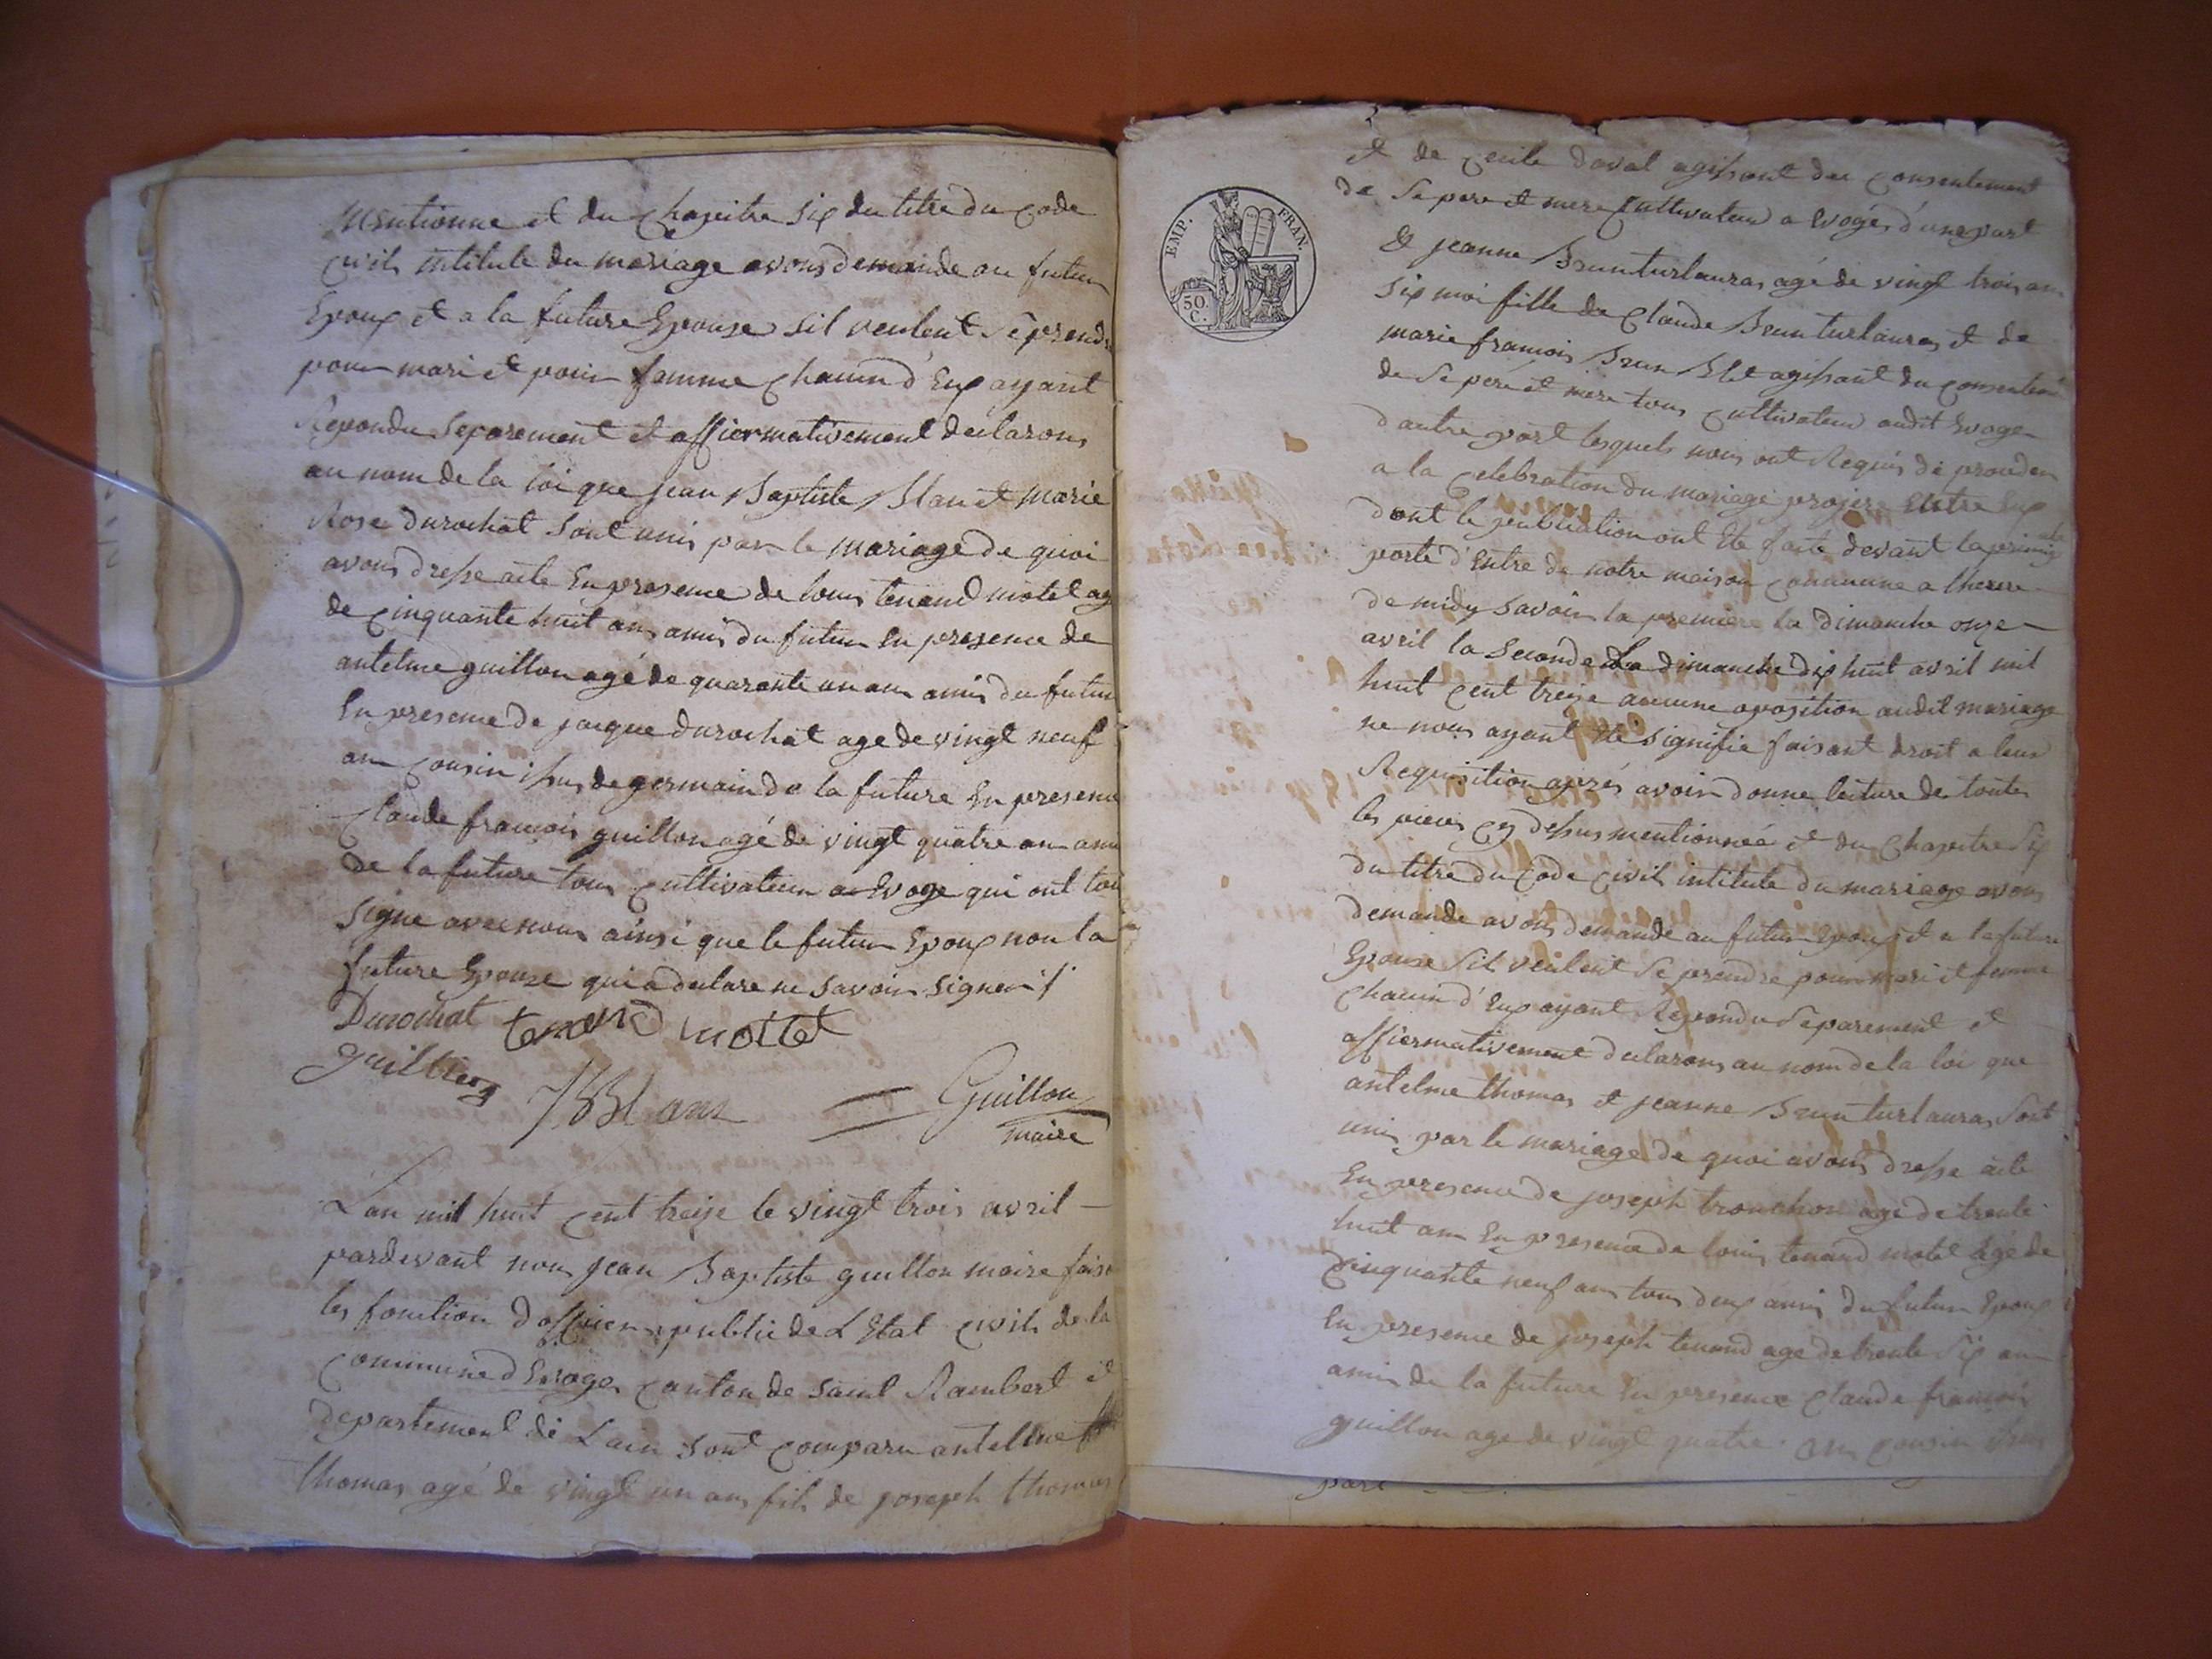 Mentionne et du Chapitre Six du titre du Code
civil intitule du mariage avons demande au futur
Epoux et a la future Epouse sil veulent se prendre
pour mari et pour femme chacun d'Eux ayant
Repondu Separement et affiermativement declarons
au nom de la loi que jean Baptiste Blan et Marie
Rose Durochat sont unis par le mariage de quoi
avons dresse acte En presence de louis tenand motet ag
de cinquante huit ans amis du futur En presence de
antelme guillon agé de quarante un ans amis du futur
En presence de jacque durochat age de vingt neuf
ans cousin issus de germain de la future En presence
Claude francois guillon agé de vingt quatre ans amis
de la future tous cultivateur a Evoge qui ont tous
signe avec nous ainsi que le futur Epoux non la
future Epouse qui a declare ne savoir signer
Durochat tenand mottet
guillion JB Blanc Guillon
maire
L'an mil huit cent treize le vingt trois avril
pardevant nous jean Baptiste guillon maire fais
les fonction d'officier public de L'Etat civil de la
Commune d'Evoges canton de saint Rambert et
departement de Lain sont comparu antelme
thomas agé de vingt un ans fils de joseph thomas
EMP. FRAN.
50 C.
et de Cecile Daval agissant du consentement
de Se pere et mere Cultivateur a Evoges d'une part
Et jeanne Brun turlauras agé de vingt trois ans
Six moi fille de Claude Brun turlauras et de
marie francois Brun agissant du consentem
de Se pere et mere tous cultivateur audit Evoge
d'autre part lesquels nous ont Requis de proceder
a la celebration du mariage projere Entre Eux
dont le publication ont Ete faite devant la principale
porte d'Entre de notre maison commune a lheure
de midy savoir la premiere la dimanche onze
avril la Seconde La dimanche dix huit avril mil
huit cent treize aucune oposition audit mariage
ne nous ayant Ete signifie faisant droit a leur
Requisition aprés avoir donne lecture de toutes
les pieces cy dessus mentionneé et du Chapitre Six
du titre du Code Civil intitule du mariage avons
demande avons demande au futur Epoux et a la future
Epouse Sil veulent Se prendre pour mari et femme
chacun d'Eux ayant Repondu Separement et
affiermativement declarons au nom de la loi que
antelme thomas et jeanne Brun turlauras Sont
unis par le mariage de quoi avons dresse acte
En presence de joseph tronchon age de trente
huit ans En presence de louis tenand motet agé de
Cinquante neuf ans tous deux amis du futur Epoux
En presence de joseph tenand age de trente Six ans
amis de la future En presence Claude francois
guillon age de vingt quatre ans cousin
part